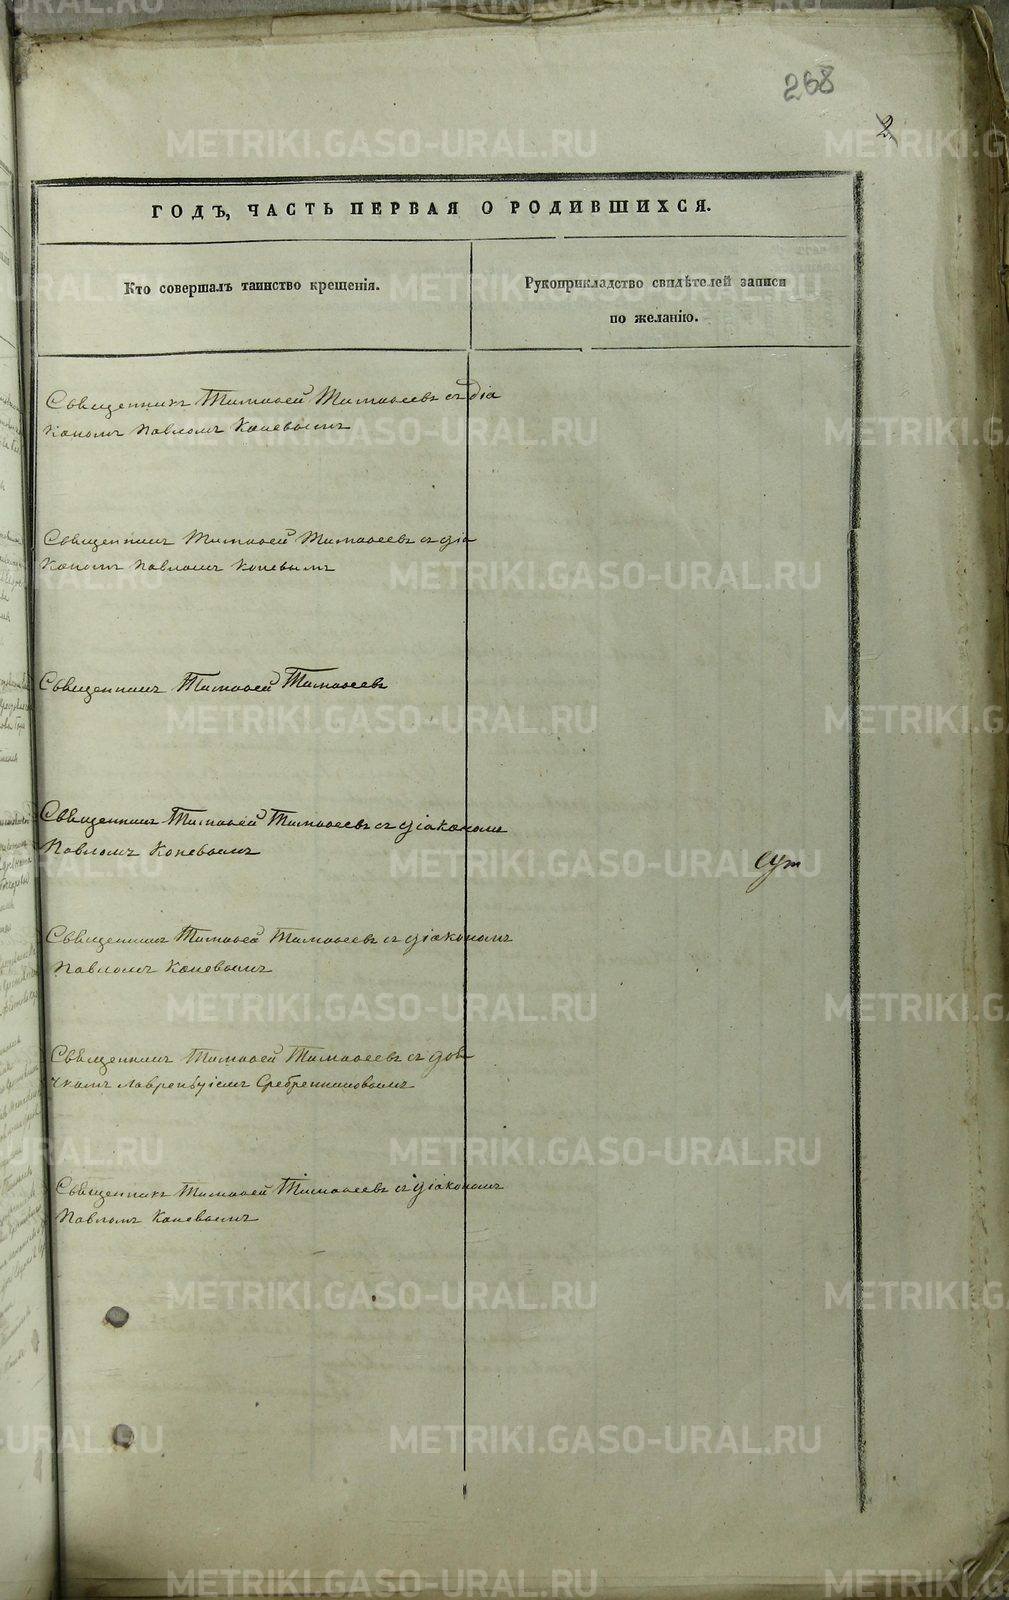 268
2
ГОДЪ, ЧАСТЬ ПЕРВАЯ О РОДИВШИХСЯ.
Кто совершалъ таинство крещенія.
Рукоприкладство свидѣтелей записи
по желанію.
Священникъ Тимоѳей Тимоѳеевъ съ діа
кономъ Павломъ Коневымъ
Священникъ Тимоѳей Тимоѳеевъ съ діа
кономъ Павломъ Коневымъ
Священникъ Тимоѳей Тимоѳеевъ
Священникъ Тимоѳей Тимоѳеевъ съ діакономъ
Павломъ Коневымъ
Священникъ Тимоѳей Тимоѳеевъ съ діакономъ
Павломъ Коневымъ
Священникъ Тимоѳей Тимоѳеевъ съ дья
чкомъ Лаврентіемъ Сребренниковымъ
Священникъ Тимоѳей Тимоѳеевъ съ діакономъ
Павломъ Коневымъ
METRIKI.GASO-URAL.RU